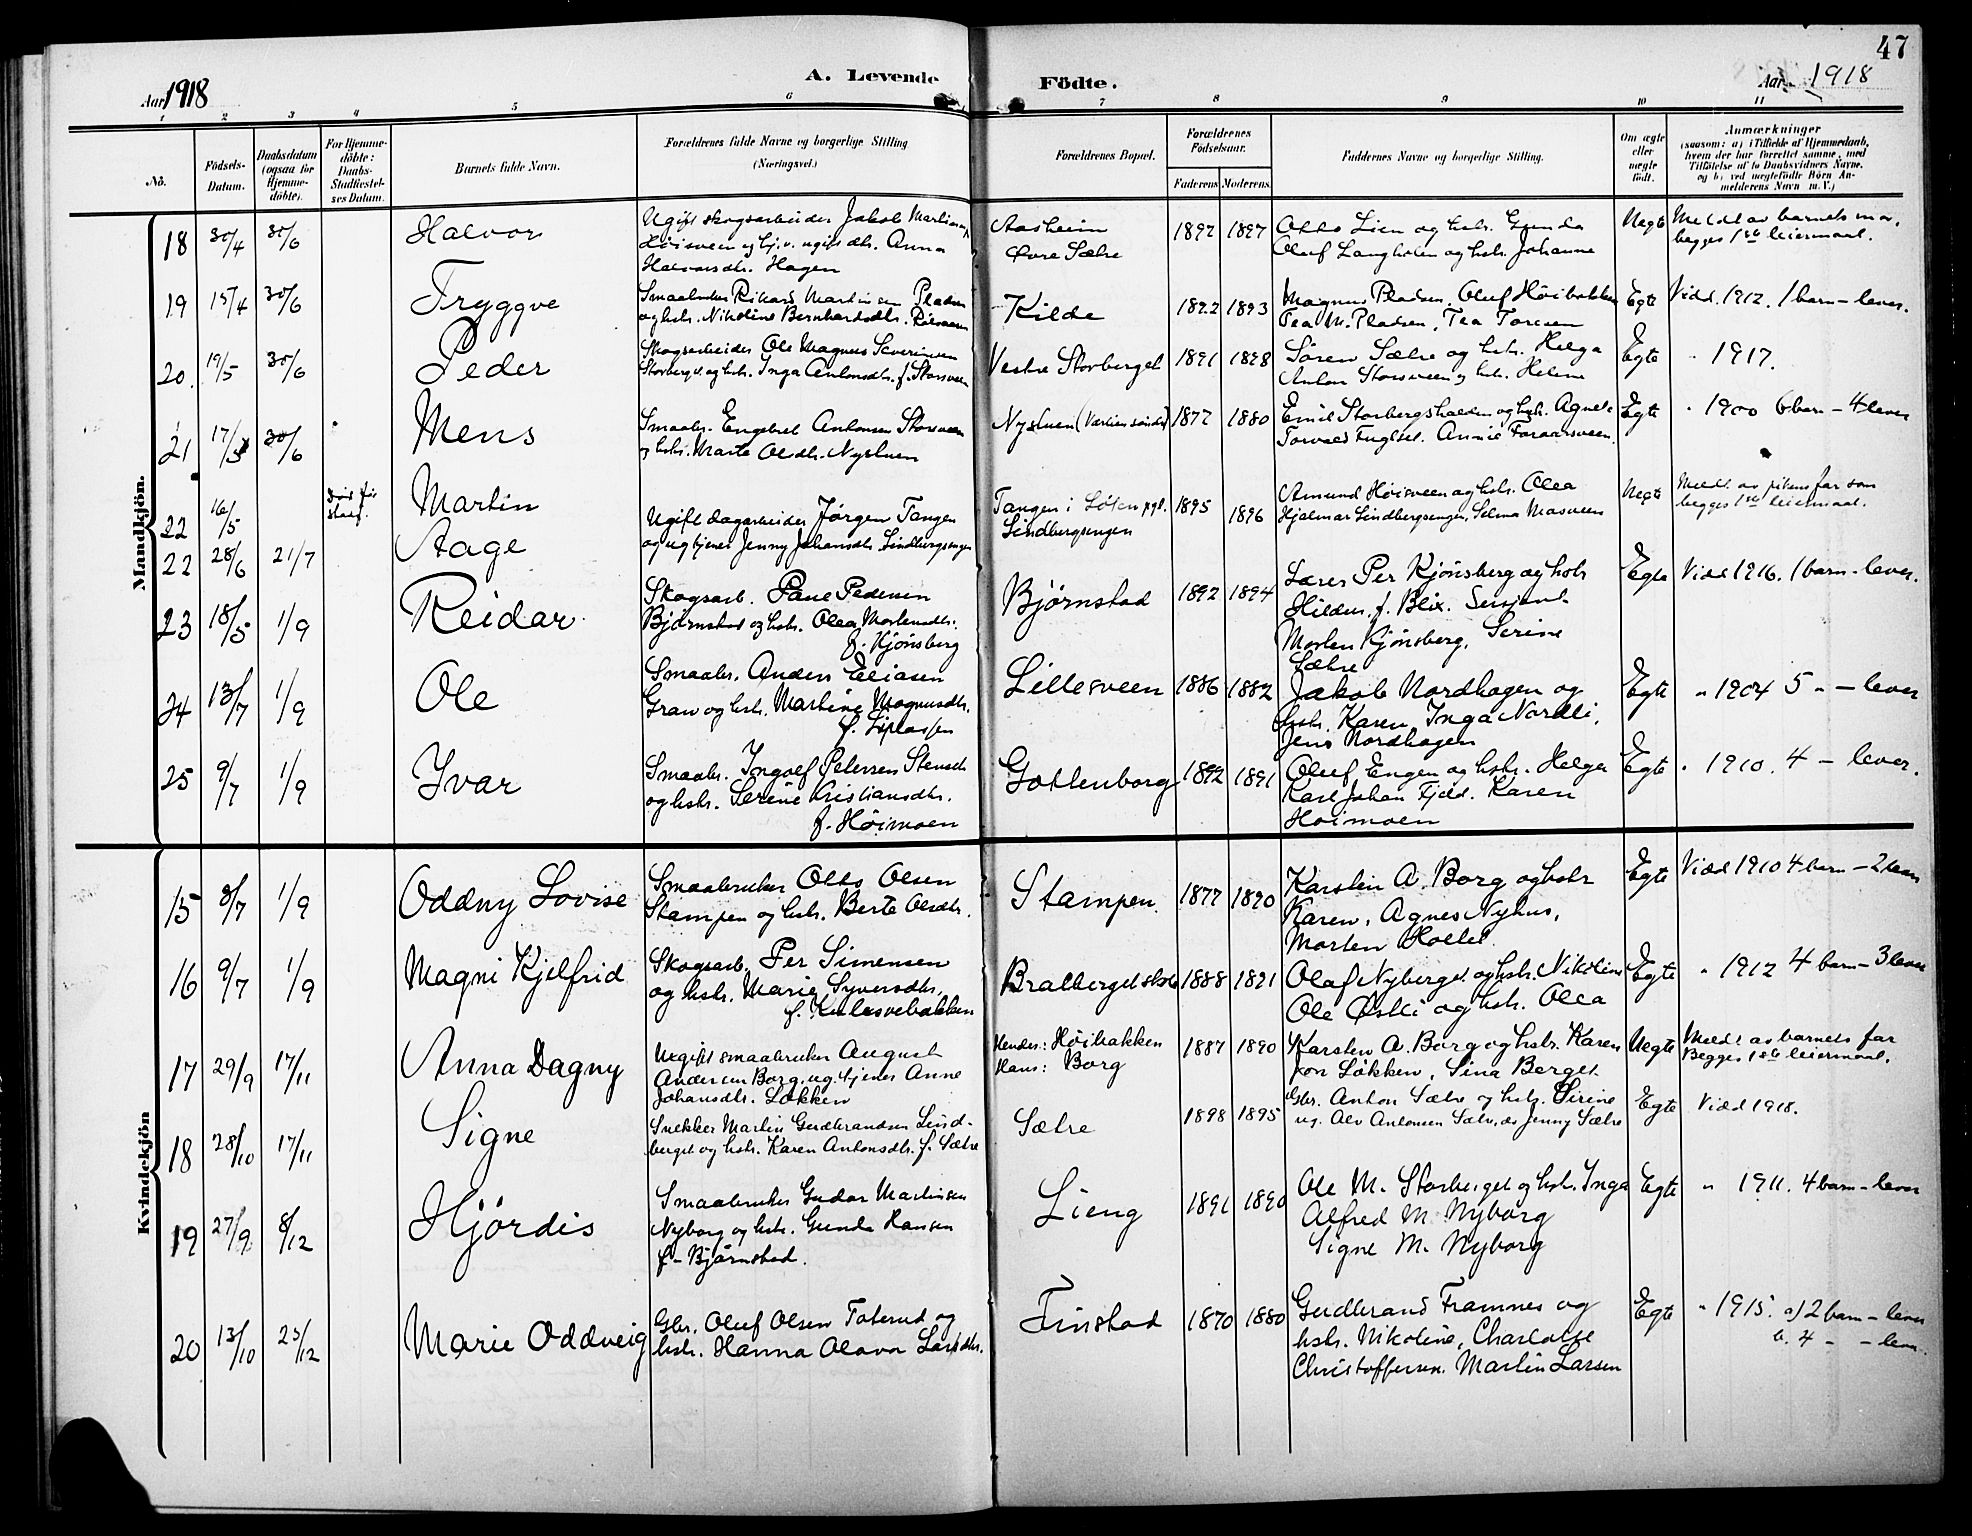 47
Aar 1918
A. Levende Födte.
Aar 1918
1 2 3 4 5 6 7 8 9 10 11
No.
Födsels-Datum.
Daabsdatum (ogsaa for Hjemme-döbte).
For Hjemme-döbte: Daabs-Stadfæstel-ses Datum.
Barnets fulde Navn.
Forældrenes fulde Navne og borgerlige Stilling (Næringsvei.)
Forældrenes Bopæl.
Forældrenes Födselsaar.
Faderens. Moderens.
Faddernes Navne og borgerlig Stilling.
Om ægte eller uægte födt.
Anmærkninger (saasom: a) i Tilfælde af Hjemmedaab, hvem der har forrettet samme, med Tilföielse af to Daabsvidners Navne. og b, ved uægtefödte Börn An-melderens Navn m. V.)
Mandkjön.
18 30/4 30/6 Halvor
Ugift skogsarbeider Jakob
Høisveen og tj.v. ugift dtr. Anna
Halvorsdtr. Hagen
Aasheim
Øvre Sætre
1897 1897
Otto Lien og hstr. Gunda
Oluf Langholen og hstr. Johanne
Uegte
Meldt av barnets mor,
begges 1ste leiermaal.
19 15/4 30/6 Tryggve
Smaabruker Rikard Martinsen Pladsen
og hstr. Nikoline Bernhardsdtr.
Kilde
1892 1893
Magnus Pladsen, Oluf Høibakken
Tea M. Pladsen, Tea Toresen
Egte
Vidd. 1912. 1 barn - lever.
20. 19/5 30/6 Peder
Skogsarbeider Ole Magnus Severinsen
Storberget og hstr. Inga Antonsdtr. f. Storsveen
Vestre Storberget
1891 1898
Søren Sætre og hstr. Helga
Anton Storsveen og hstr. Helene
Egte
" 1917.
21 17/5 30/6 Mens
Smaabr. Engebret Antonsen Storsveen
og hstr. Marte Olsdtr. Nystuen
Nystuen
1877 1880
Emil Storbergshalden og hstr. Agnete
Torvald Fuglset. Annie
Egte
" 1900 6 barn - 4 lever
22 16/5
Martin
Ugift dagarbeider Jørgen Tangen
og ug. tjener Jenny Johansdtr. Lindbergsengen
Tangen i Løten pgl.
Lindbergsengen
1895 1896
Amund Høisveen og hstr. Olea
Hjalmar Lindbergsengen, Selma Masveen
Uegte
Meldt av pikens far som
begges 1ste leiermaal.
22 28/6 21/7 Aage
23 18/5 1/9 Reidar
Skogsarb. Paul Pedersen
Bjørnstad og hstr. Olea Mortensdtr.
f. Kjønsberg
Bjørnstad
1892 1894
Lærer Per Kjønsberg og hstr
Hildur f. Blix. Sersjant
Morten Kjønsberg, Serine
Sætre
Egte
Vidd 1916. 1 barn - lever.
24 13/7 1/9 Ole
Smaabr. Anders Eliasen
Grav og hstr. Martine Magnusdtr.
Lillesveen
1886 1882
Jakob Nordhagen og
hstr. Karen, Inga Nordli,
Jens Nordhagen
Egte
" 1904 5 " - lever
25 9/7 1/9 Ivar
Smaabr. Ingolf Petersen
og hstr. Serine Kristiansdtr.
f. Høimoen
Gottenborg
1892 1891
Oluf Engen og hstr. Helga
Karl Johan Fjeld. Karen
Høimoen
Egte
" 1910. 4 - lever.
Kvindekjön
15 8/7 1/9 Oddny Lovise
Smaabruker Otto Olsen
Stampen og hstr. Berte Olsdtr.
Stampen.
1877 1890
Karsten A. Borg og hstr
Karen, Agnes Nyhus,
Morten Holtet
Egte
Vidd 1910 4 barn - 2 lever
16 9/7 1/9 Magni Kjelfrid
Skogsarb. Per Simensen
og hstr. Marie Syversdtr.
f. Kulusvebakken
Bratberget skole
1888 1891
Olaf Nyberget og hstr. Nikoline
Ole Østli og hstr. Olea
Egte
" 1912 4 barn - 3 lever
17 29/9 17/11 Anna Dagny
Ugift smaabruker August
Andersen Borg. ug. tjener Anne
Johansdtr. Løkken
Hendes: Høibakken
Hans: Borg
1887 1890
Karsten A. Borg og hstr. Karen
Jon Løkken, Sina Berget
Uegte
Meldt av barnets far
Begges 1ste leiermaal.
18 28/10 17/11 Signe
Snekker Martin Gudbrandsen Lind-
berget og hstr. Karen Antonsdtr. f. Sætre
Sætre
1898 1895
Gbr. Anton Sætre og hstr. Sirine
ug. Alv Antonsen Sætre, do Jenny Sætre
Egte
Vidd 1918.
19 27/9 8/12 Hjördis
Smaabruker Gudar Martinsen
Nyborg og hstr. Gunda Hansen
f. Bjørnstad.
Lieng
1891 1890
Ole M. Storberget og hstr. Inga
Alfred M. Nyborg
Signe M. Nyborg
Egte
" 1911. 4 barn - lever
20 13/10 25/12 Marie Oddveig
Gbr. Oluf Olsen Taterud og
hstr. Hanna Olava Larsdtr.
Finstad
1870 1880
Gudbrand Framnes og
hstr. Nikoline, Charlotte
Christoffersen. Martin Larsen
Egte
" 1915. a) 2 barn - lever
b. 4 - - lever.